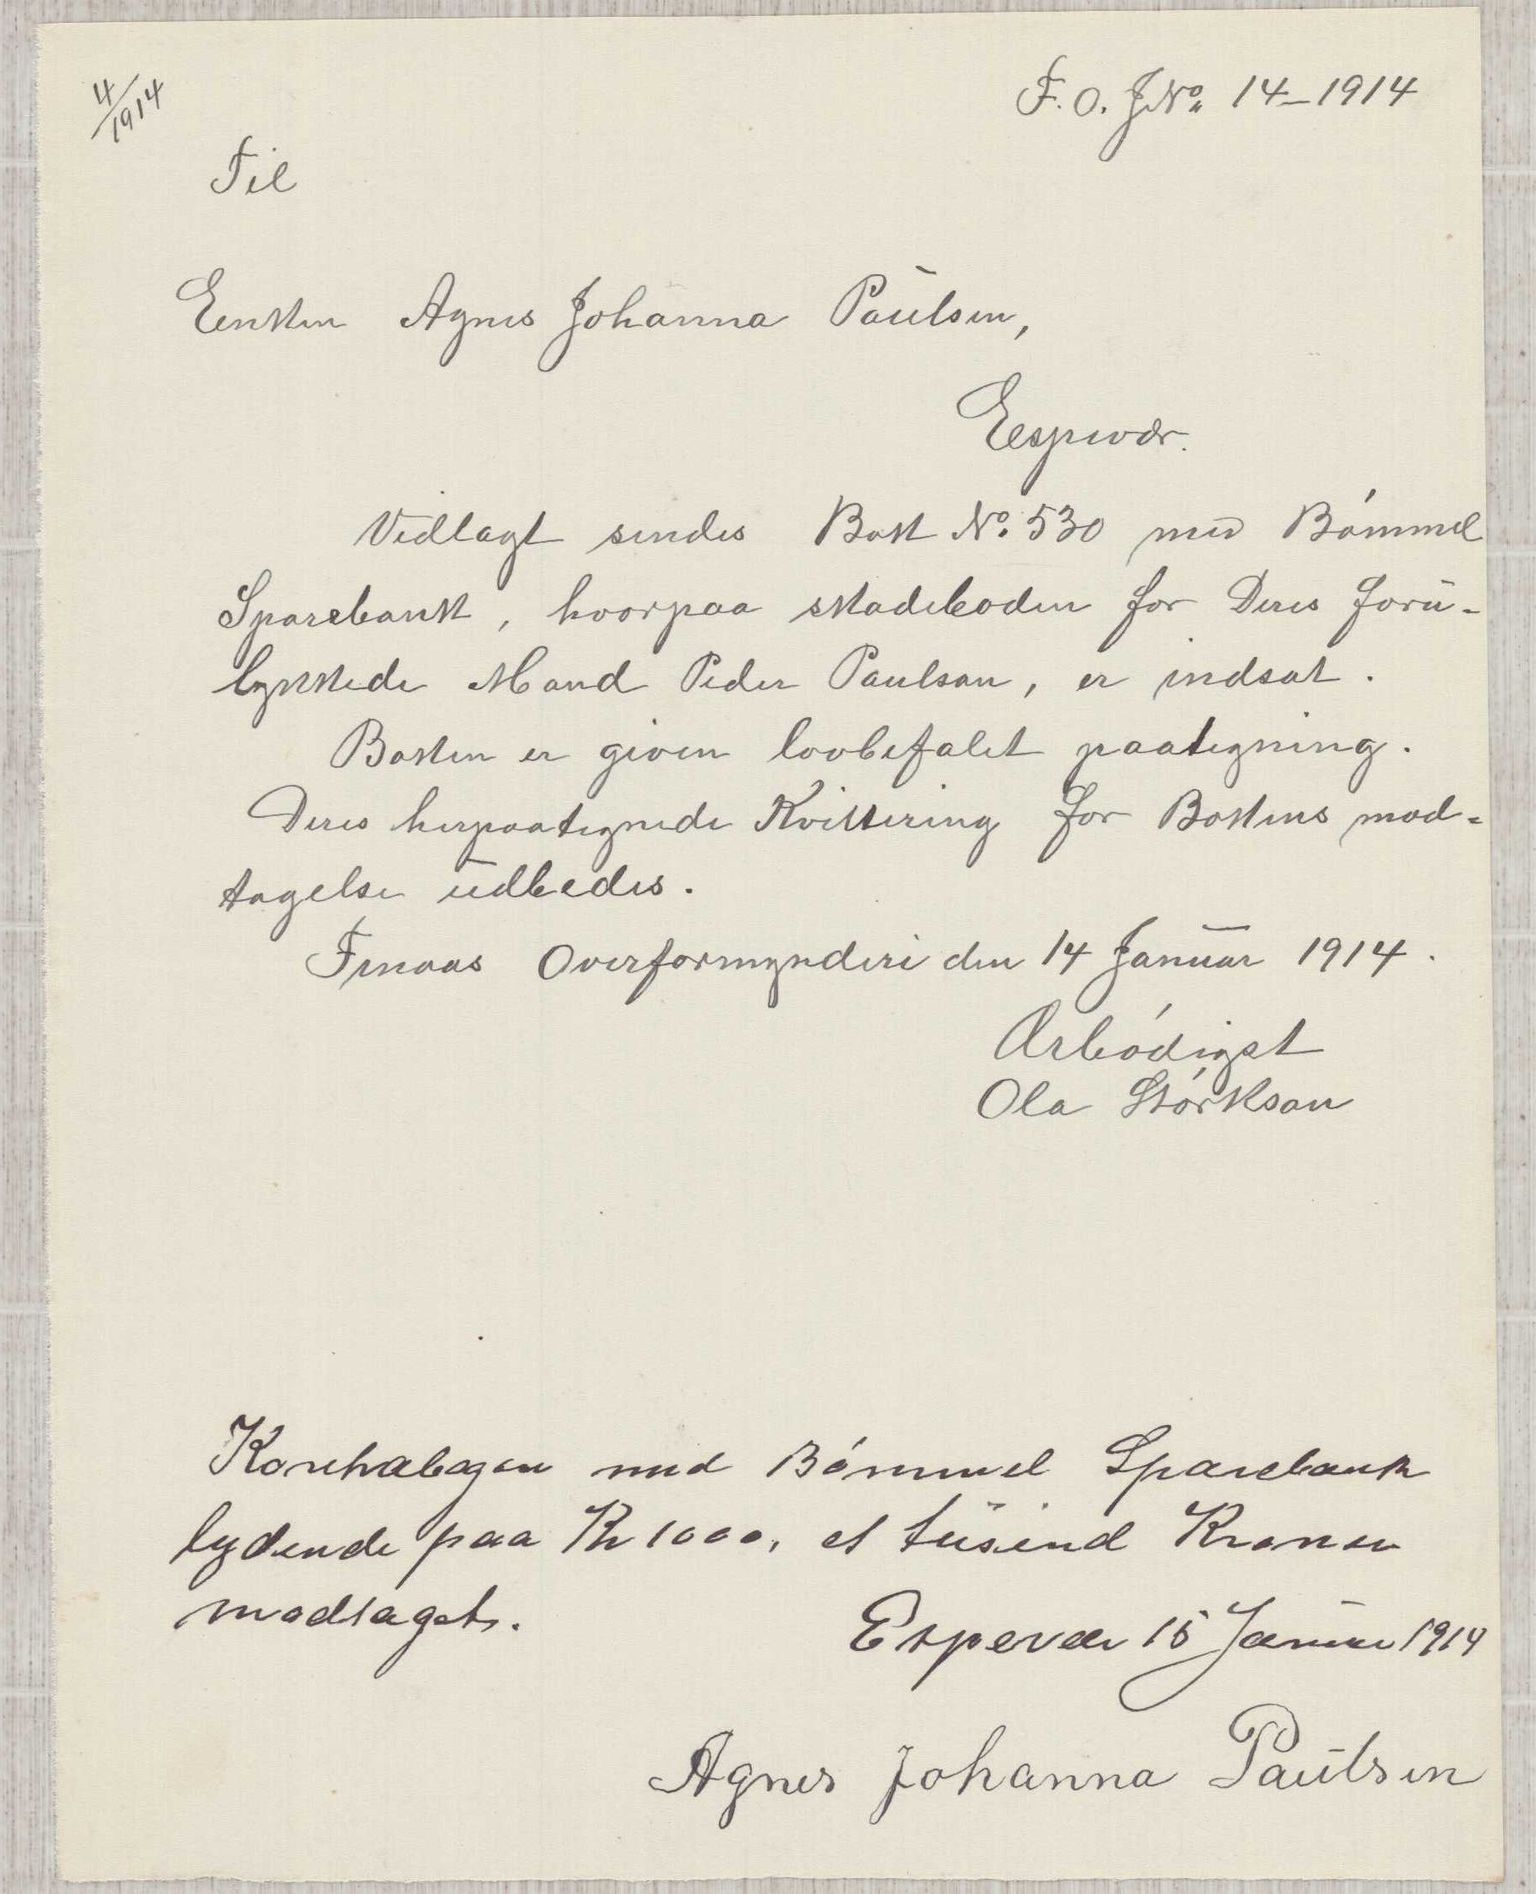 4/1914
F. O. J No. 14-1914
Til
Enken Agnes Johanna Paulsen,
Espevær.
Vedlagt sendes Bok No. 530 med Bømmel
Sparebank, hvorpaa skadeboden for Deres foru-
lykkede Mand Peder Paulsen, er indsat.
Boken er given lovbefalet paategning.
Deres herpaategnede Kvittering for Bokens mod-
tagelse udbedes.
Finaas Overformynderi den 14 Januar 1914.
Ærbødigst
Ola Størkson
med Bømmel Sparebank
lydende paa Kr 1000, et tusind Kroner
modtaget.
Espevær 15 Januar 1914
Agnes Johanna Paulsen